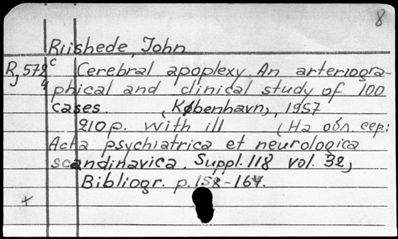 8
Riishede, John
R,578 c Cerebral apoplexy. An arteriogra-
4 phical and clinical study of 100
cases (København), 1957
210 p. with ill (На обл. сер:
Acta psychiatrica et neurologica
scandinavica. Suppl. 118 vol. 32,
Bibliogr. p. 158-164.
+